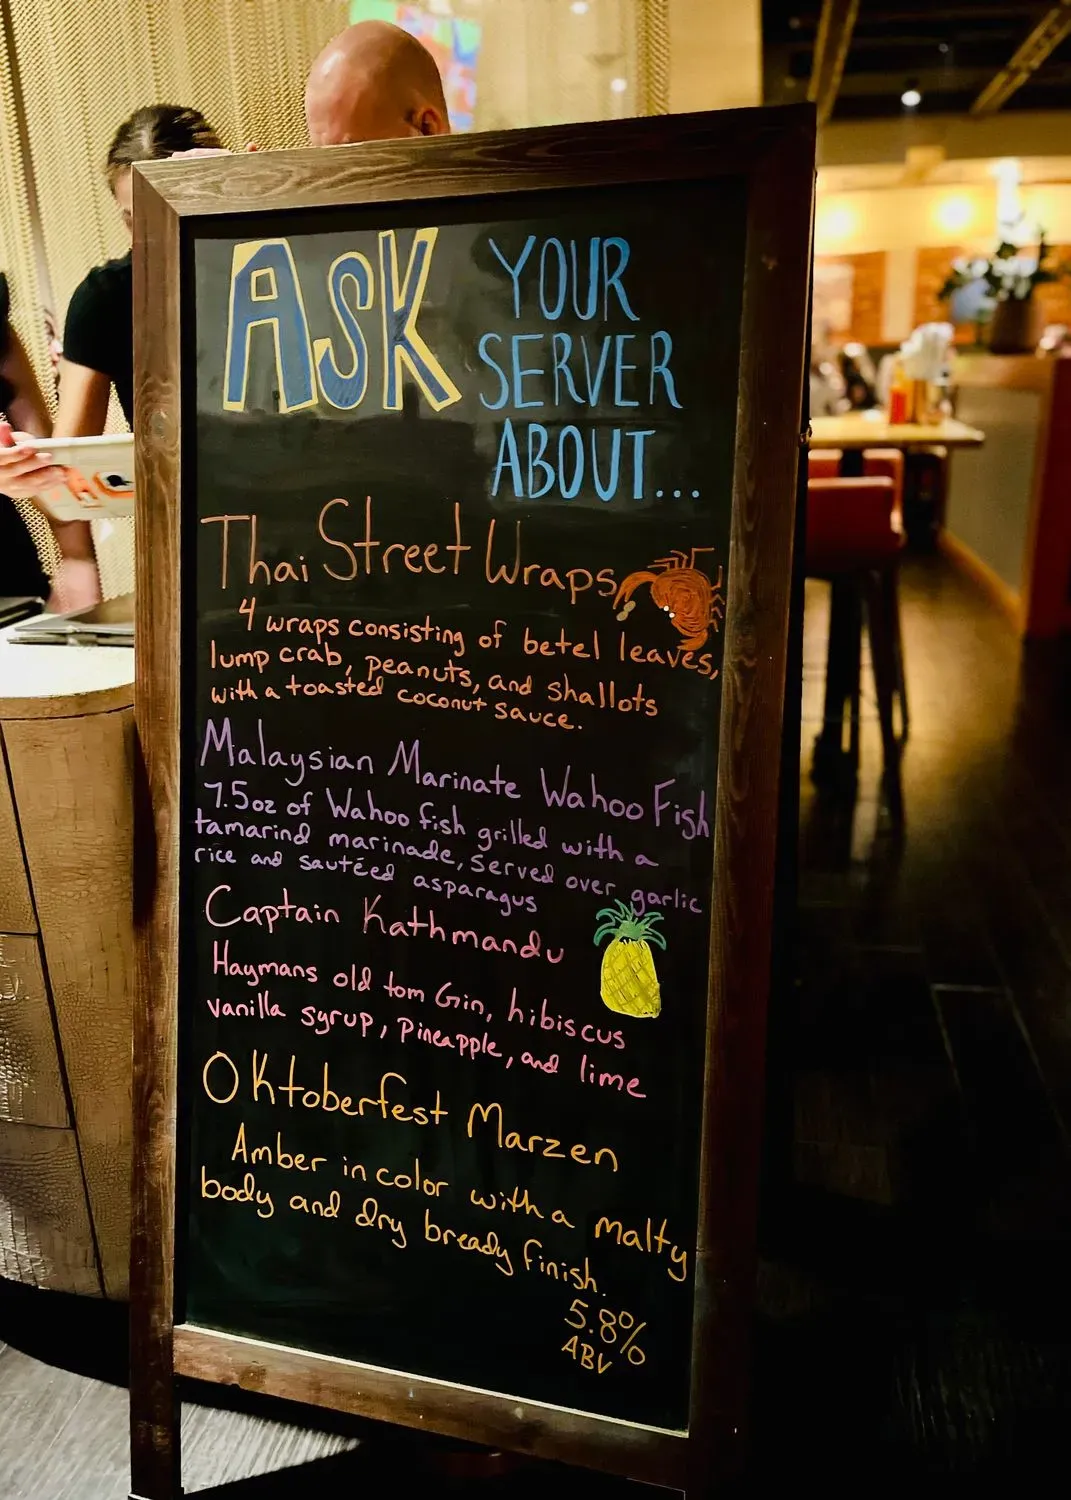 ASK YOUR
SERVER
ABOUT...
Thai Street Wraps
4 wraps consisting of betel leaves,
lump crab, peanuts, and shallots
with a toasted coconut sauce.
Malaysian Marinate Wahoo Fish
7.5oz of Wahoo fish grilled with a
tamarind marinade, served over garlic
rice and sautéed asparagus
Captain Kathmandu
Haymans old tom Gin, hibiscus
vanilla syrup, pineapple, and lime
Oktoberfest Marzen
Amber in color with a malty
body and dry bready finish.
5.8%
ABV